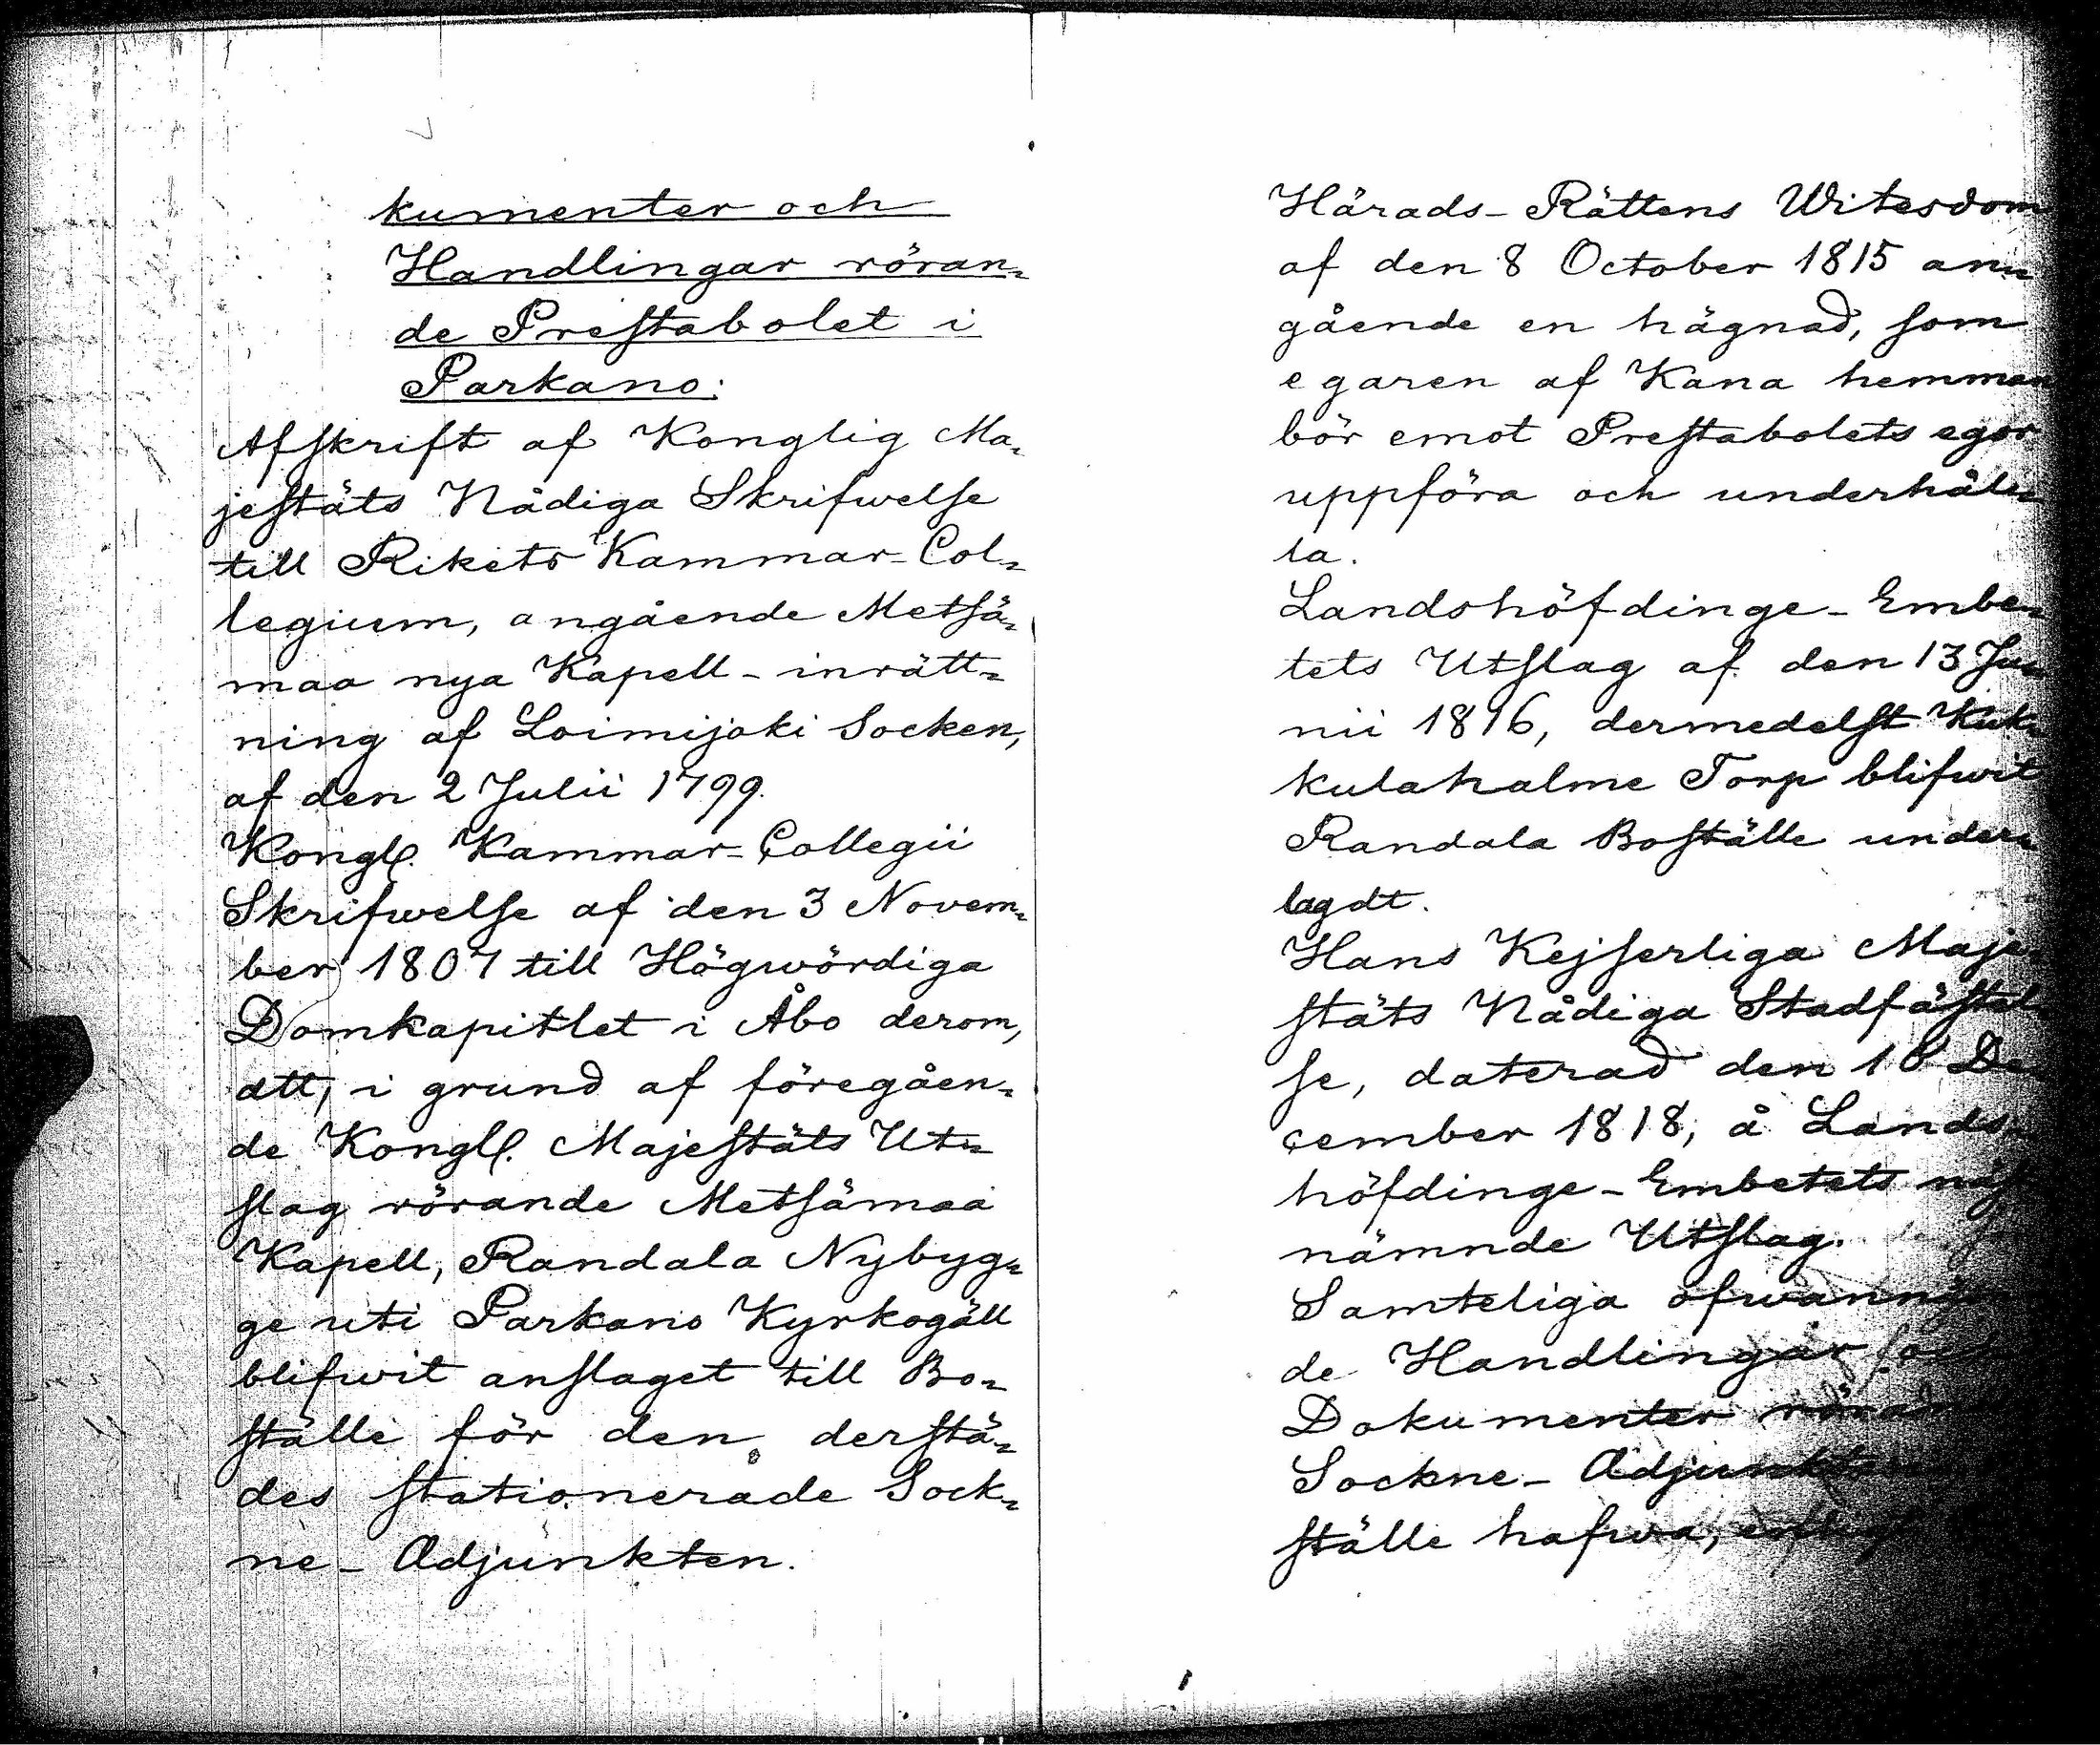 kumenter och
Handlingar röran-
de Prestabolet i
Parkano:
Afskrift af Konglig Ma-
jestäts Nådiga Skrifwelse
till Rikets Kammar-Col-
legium, angående Metsä-
maa nya Kapell-inrätt-
ning af Loimijoki Socken,
af den 2 Julii 1799.
Kongl. Kammar-Collegii
Skrifwelse af den 3 Novem-
ber 1807 till Högwördiga
Domkapitlet i Åbo derom,
att, i grund af föregåen-
de Kongl. Majestäts Ut-
slag rörande Metsämaa
Kapell, Randala Nybyg-
ge uti Parkano Kyrkogäll
blifwit anslaget till Bo-
ställe för den derstä-
des stationerade Sock-
ne-Adjunkten.
Härads-Rättens Witesdom
af den 8 October 1815 an-
gående en hägnad, som
egaren af Kana hemman
bör emot Prestabolets egor
uppföra och underhål-
la.
Landshöfdinge-Embe-
tets Utslag af den 13 Ju-
nii 1816, dermedelst Kuk-
kulahalme Torp blifwit
Randala Boställe under-
lagdt.
Hans Kejserliga Maje-
stäts Nådiga Stadfästel-
se, daterad den 18 De-
cember 1818, å Lands-
höfdinge-Embetets näst
nämnde Utslag.
Samteliga ofwannä
de Handlingar
Dokumenter röran
Sockne-Adjunkt
ställe hafwa,